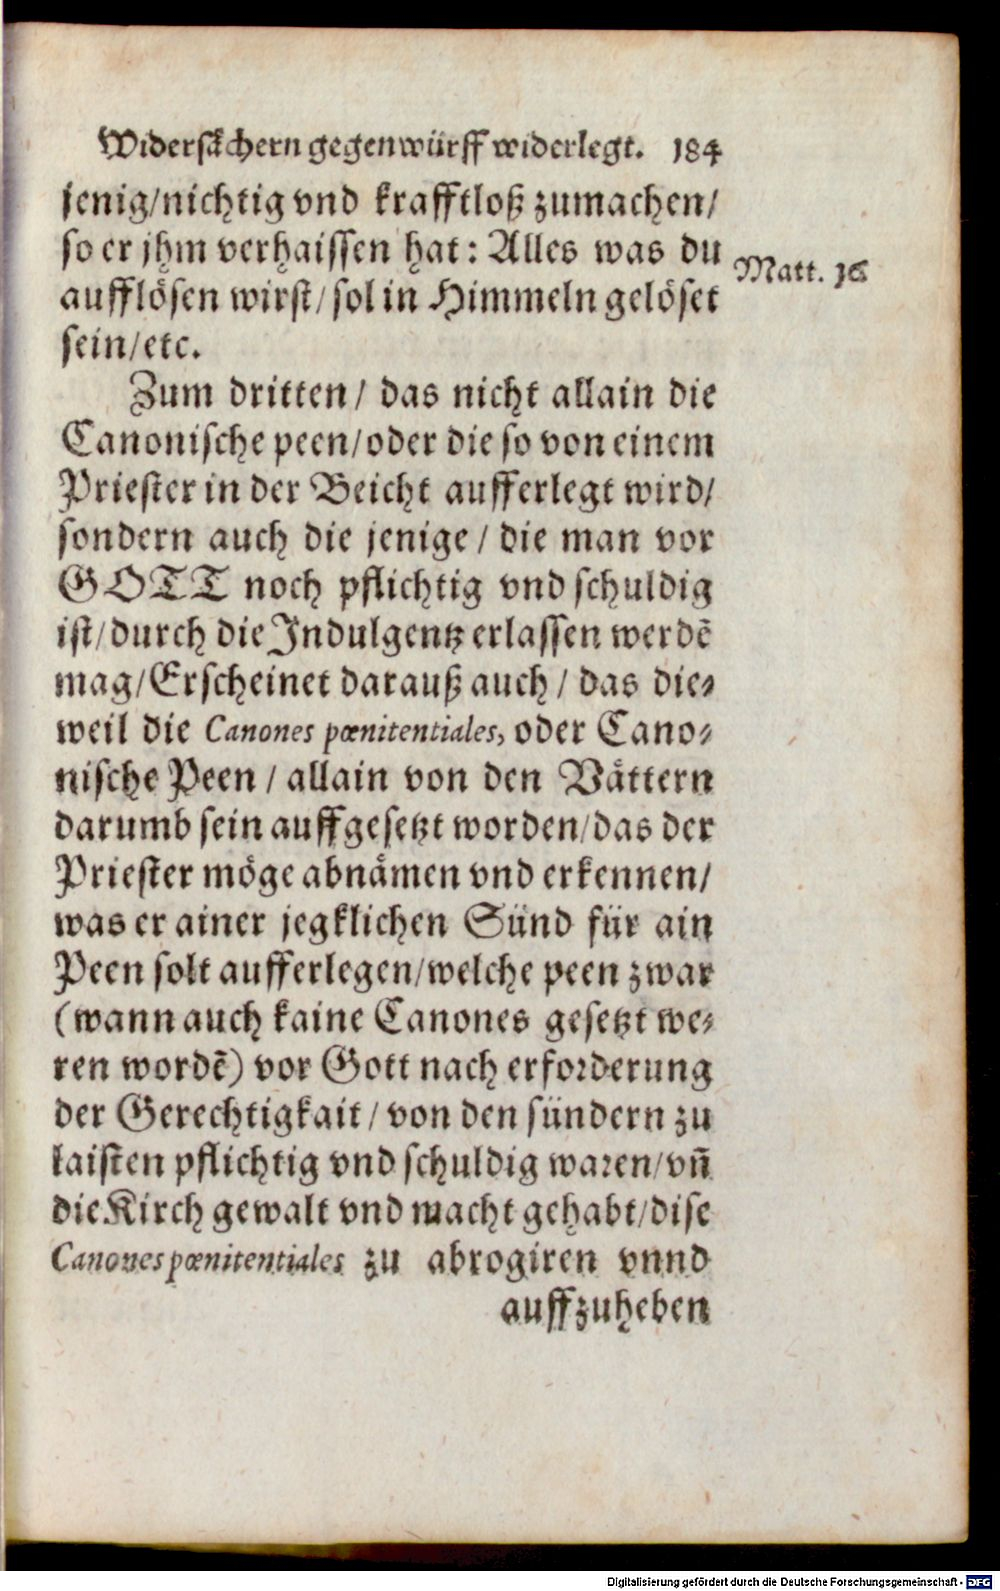 Widersächern gegenwürff widerlegt. 184
jenig/nichtig vnd krafftloß zumachen/
so er jhm verhaissen hat: Alles was du
Matt. 16
aufflösen wirst/sol in Himmeln gelöset
sein/etc.
Zum dritten/ das nicht allain die
Canonische peen/oder die so von einem
Priester in der Beicht aufferlegt wird/
sondern auch die jenige/ die man vor
GOTT noch pflichtig vnd schuldig
ist/durch die Indulgentz erlassen werdẽ
mag/Erscheinet darauß auch/ das die-
weil die Canones pœnitentiales, oder Cano-
nische Peen/ allain von den Vättern
darumb sein auffgesetzt worden/das der
Priester möge abnämen vnd erkennen/
was er ainer jegklichen Sünd für ain
Peen solt aufferlegen/welche peen zwar
(wann auch kaine Canones gesetzt we-
ren wordẽ) vor Gott nach erforderung
der Gerechtigkait/von den sündern zu
laisten pflichtig vnd schuldig waren/vñ
die Kirch gewalt vnd macht gehabt/dise
Canones pœnitentiales zu abrogiren vnnd
auffzuheben
Digitalisierung gefördert durch die Deutsche Forschungsgemeinschaft - DFG